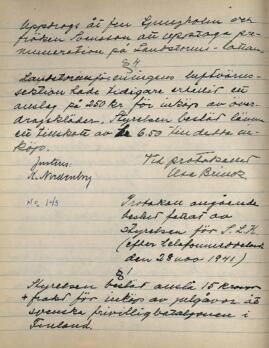 Uppdrogs åt fru Ljungholm och
fröken Svensson att upptaga pre-
numeration på Landstorms-
§ 4
Landstormsföreningens luftvärns-
sektion hade tidigare erhållit ett
anslag på 250 kr för inköp av över-
dragskläder. Styrelsen beslöt lämna
ett tillskott av kr 6.50 till detta in-
köp.
Justeras:
Vid protokollet
Nordenborg
Elsa
No 143
Protokoll angående
beslut fattat av
styrelsen för S.L.K.
(efter telefon
den 28 nov 1941)
§ 1
Styrelsen beslöt anslå 15 kronor
+ frakt för inköp av julgåvor åt
svenska frivilligbataljonen i
Finland.